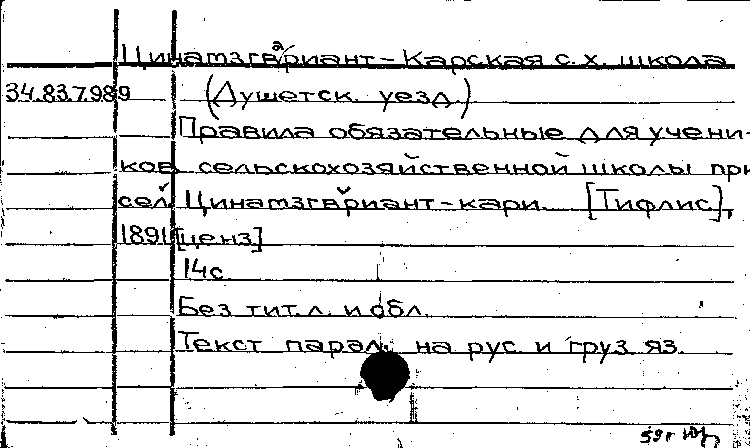 Цинамзгвариант-Карская с.х. школа
34.83.7.989 (Душетск. уезд.)
Правила обязательные для учени-
ков сельскохозяйственной школы при
сел. Цинамзгвриант-кари. [Тифлис],
1891 [ценз]
14с.
Без тит. л. и обл.
Текст парал. на рус. и груз. яз.
59г